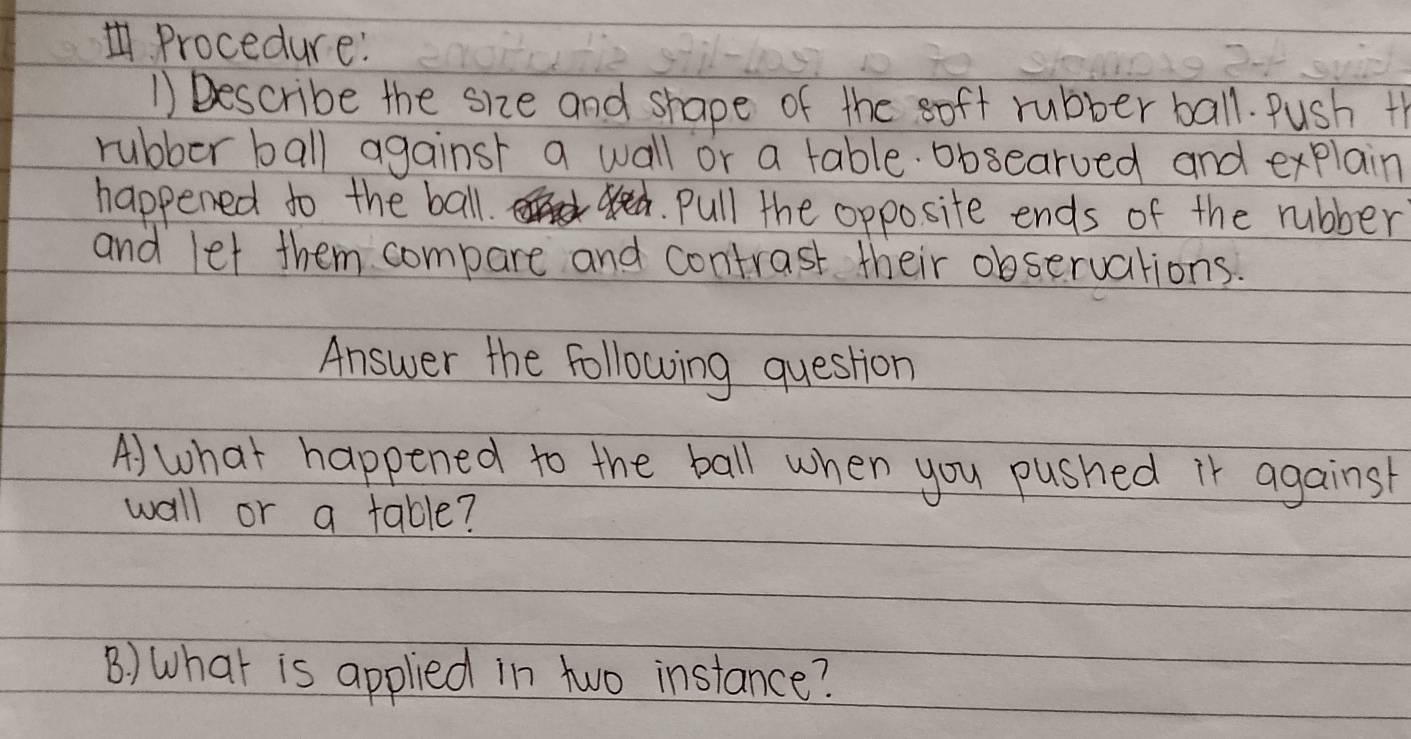 III. Procedure:
1) Describe the size and shape of the soft rubber ball. Push th
rubber ball against a wall or a table. Obsearved and explain
happened to the ball. Pull the opposite ends of the rubber
and let them compare and contrast their observations.
Answer the following question
A.) What happened to the ball when you pushed it against
wall or a table?
B.) What is applied in two instance?